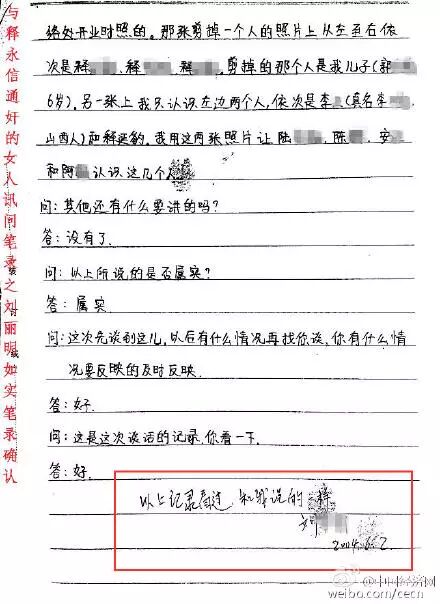 与释永信通奸的女人讯问笔录之刘丽明如实笔录确认
开业时照的。那张剪掉一个人的照片上从左至右依
次是释、释、释,剪掉的那个人是我儿子(郭
6岁)。另一张上我只认识左边两个人,依次是李(真名李
山西人)和释延豹。我用这两张照片让陆、陈、安
和阿认识这几个
问:其他还有什么要讲的吗?
答:没有了.
问:以上所说的是否属实?
答:属实
问:这次先谈到这儿,以后有什么情况再找你谈,你有什么情
况要反映的及时反映.
答:好.
问:这是这次谈话的记录.你看一下.
答:好.
以上记录看过.和我说的一样
刘
2004.6.2.
@中国经济网
weibo.com/cecn